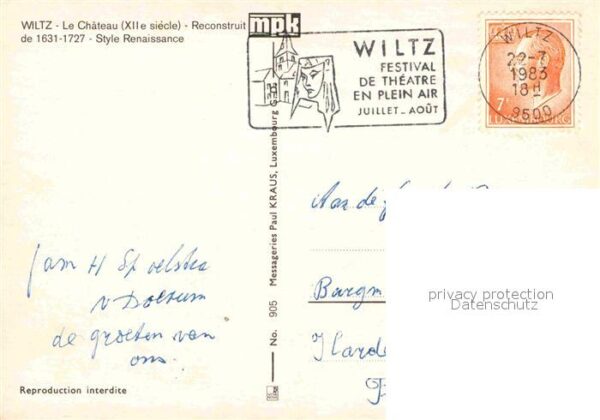 WILTZ - Le Château (XIIe siécle) - Reconstruit
de 1631-1727 - Style Renaissance
mpk
WILTZ
FESTIVAL
DE THÉATRE
EN PLEIN AIR
JUILLET - AOÛT
WILTZ
22-7
1983
18H
9500
7F
LUXEMBOURG
No. 905 Messageries Paul KRAUS, Luxembourg G.
Aan de
fam H Spoelstra
v Doesum
de groeten van
ons.
privacy protection
Datenschutz
Reproduction interdite